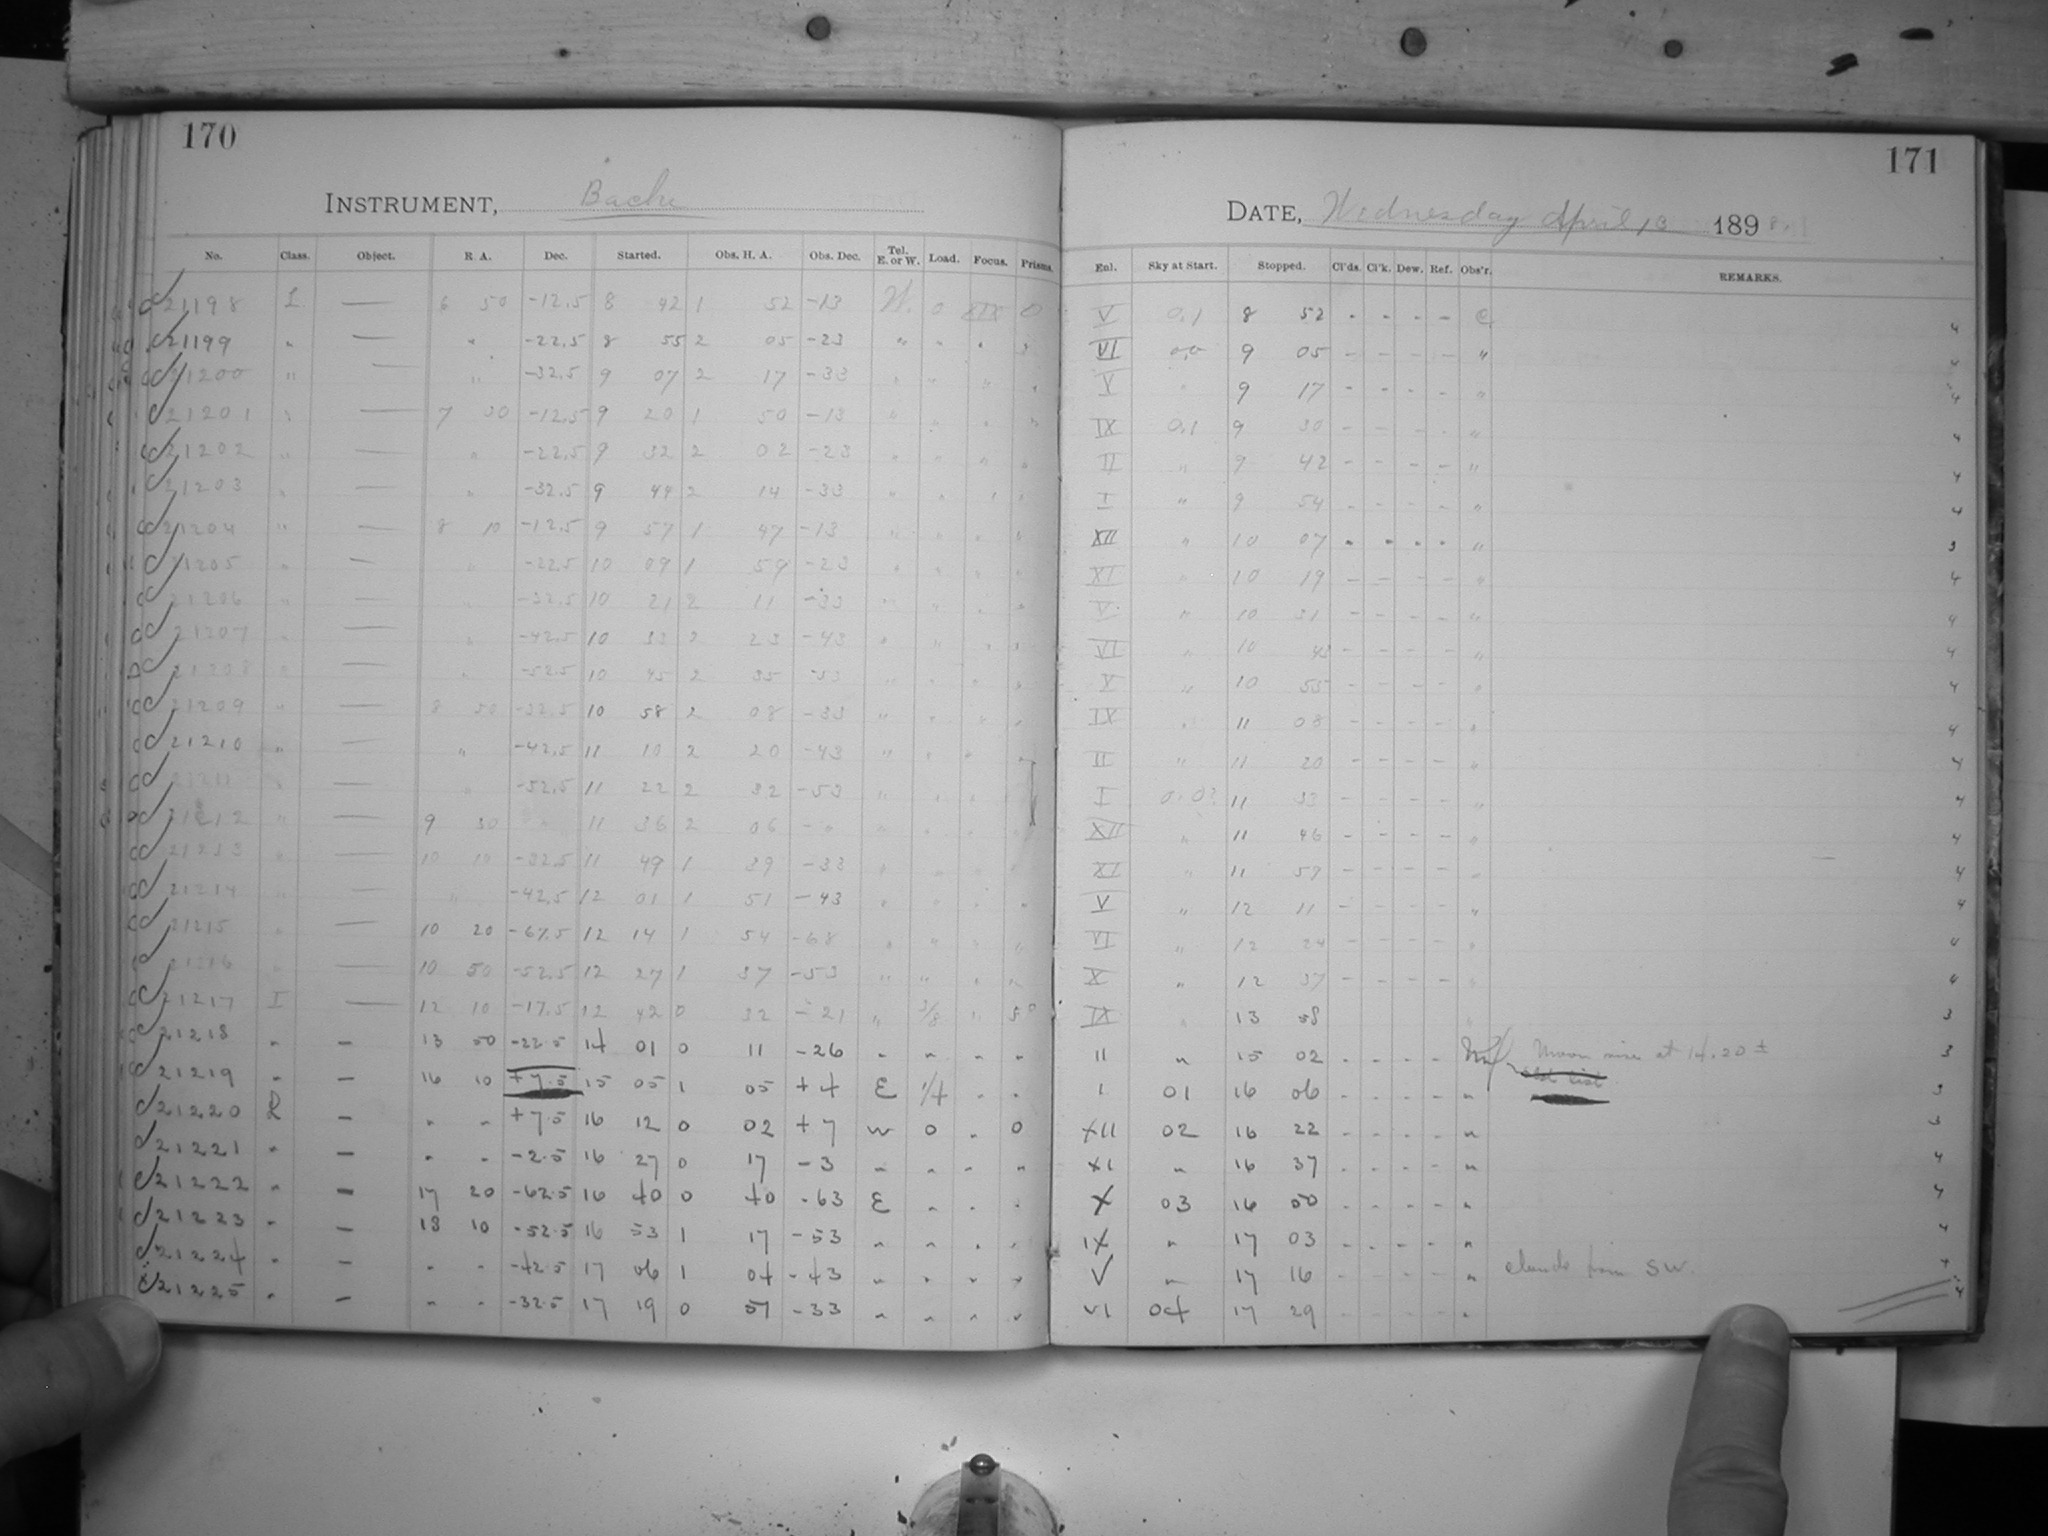 170
INSTRUMENT, Bache
No. Class. Object. R. A. Dec. Started. Obs. H. A. Obs. Dec. Tel. E. or W. Load. Focus. Prisms.
21198 L — 6 50 -12.5 8 42 1 52 -13 W. 0 XIX 0
21199 " — " -22.5 8 55 2 05 -23 " " " "
21200 " — " -32.5 9 07 2 17 -33 " " " "
21201 " — 7 30 -12.5 9 20 1 50 -13 " " " "
21202 " — " -22.5 9 32 2 02 -23 " " " "
21203 " — " -32.5 9 44 2 14 -33 " " " "
21204 " — 8 10 -12.5 9 57 1 47 -13 " " " "
21205 " — " -22.5 10 09 1 59 -23 " " " "
21206 " — " -32.5 10 21 2 11 -33 " " " "
21207 " — " -42.5 10 33 2 23 -43 " " " "
21208 " — " -52.5 10 45 2 35 -53 " " " "
21209 " — 8 50 -32.5 10 58 2 08 -33 " " " "
21210 " — " -42.5 11 10 2 20 -43 " " " "
21211 " — " -52.5 11 22 2 32 -53 " " " "
21212 " — 9 30 " 11 36 2 06 - " " " " "
21213 " — 10 10 -32.5 11 49 1 39 -33 " " " "
21214 " — " -42.5 12 01 1 51 -43 " " " "
21215 " — 10 20 -67.5 12 14 1 54 -68 " " " "
21216 " — 10 50 -52.5 12 27 1 37 -53 " " " "
21217 I — 12 10 -17.5 12 42 0 32 -21 " 3/8 "
21218 " — 13 50 -22.5 14 01 0 11 -26 " " " "
21219 " — 16 10 +7.5 15 05 1 05 +4 E 1/4 " "
21220 L — " " +7.5 16 12 0 02 +7 W 0 " 0
21221 " — " " -2.5 16 27 0 17 -3 " " " "
21222 " — 17 20 -62.5 16 40 0 40 -63 E " " "
21223 " — 18 10 -52.5 16 53 1 17 -53 " " " "
21224 " — " " -42.5 17 06 1 04 -43 " " " "
21225 " — " " -32.5 17 19 0 51 -33 " " " "
171
DATE, Wednesday April 13 1898.
Enl. Sky at Start. Stopped. Cl'ds. Cl'k. Dew. Ref. Obs'r. REMARKS.
V 0.1 8 52 - - - - C. 4
VI 0.0 9 05 - - - - " 4
V " 9 17 - - - - " 4
IX 0.1 9 30 - - - - " 4
II " 9 42 - - - - " 4
I " 9 54 - - - - " 4
XII " 10 07 - - - - " 3
XI " 10 19 - - - - " 4
V " 10 31 - - - - " 4
VI " 10 43 - - - - " 4
X " 10 55 - - - - " 4
IX " 11 08 - - - - " 4
II " 11 20 - - - - " 4
I 0.0? 11 33 - - - - " 4
XII " 11 46 - - - - " 4
XI " 11 59 - - - - " 4
V " 12 11 - - - - " 4
VI " 12 24 - - - - " 4
X " 12 37 - - - - " 4
IX " 13 58 " 3
II " 15 02 - - - - Moon rise at 14.20 ± 3
I 01 16 06 - - - - " old list 3
XII 02 16 22 - - - - " 3
XI " 16 37 - - - - " 4
X 03 16 50 - - - - " 4
IX " 17 03 - - - - " 4
V " 17 16 - - - - " clouds from SW. 4
VI 04 17 29 - - - - " 4